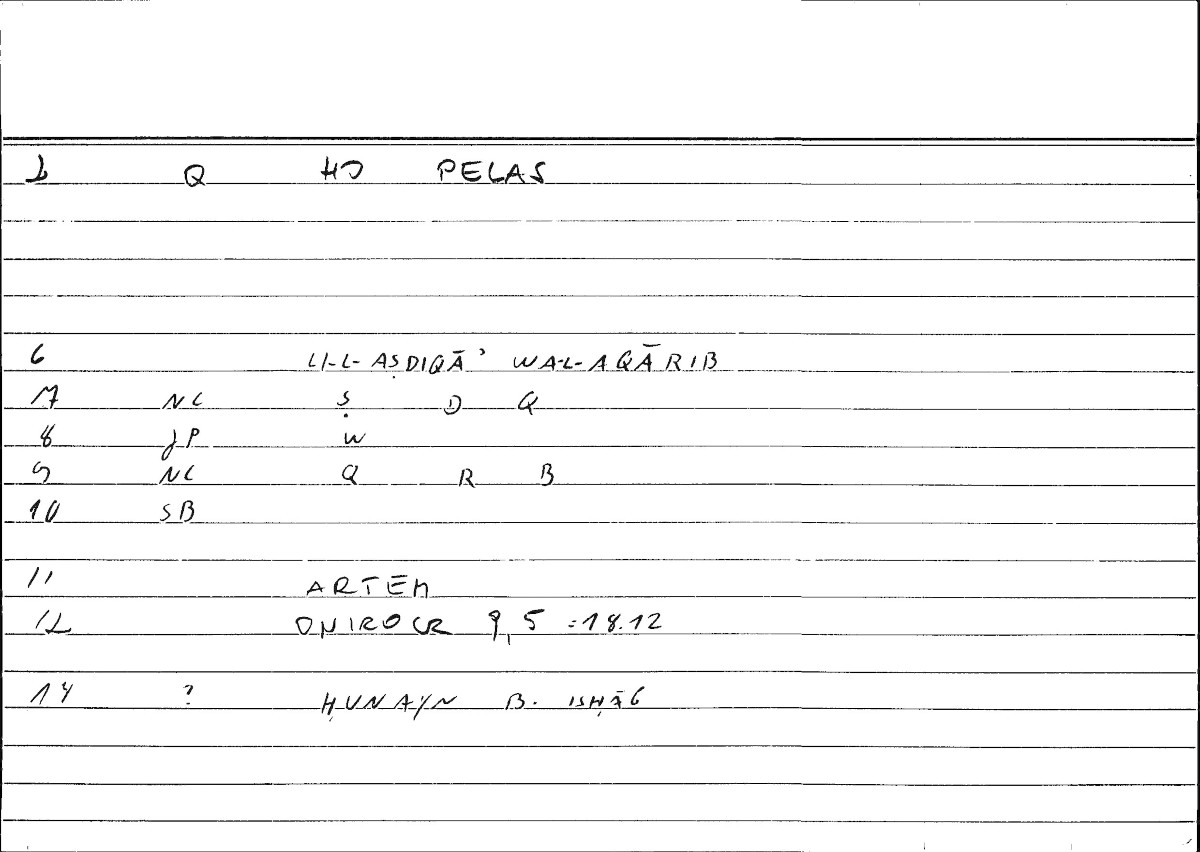 1 Q HO PELAS
6 LI-L-AṢDIQĀʾ WA-L-AQĀRIB
7 NC Ṣ D Q
8 JP W
9 NC Q R B
10 SB
11 ARTĒM
12 ONIROCR 9,5 = 18.12
14 ? ḤUNAYN B. ISḤĀG